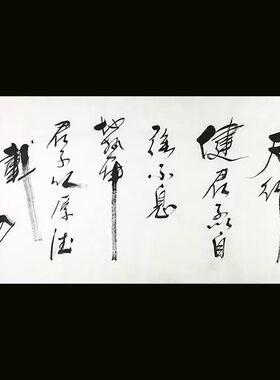 天行
健君子以自
強不息
地勢坤
君子以厚德
載物